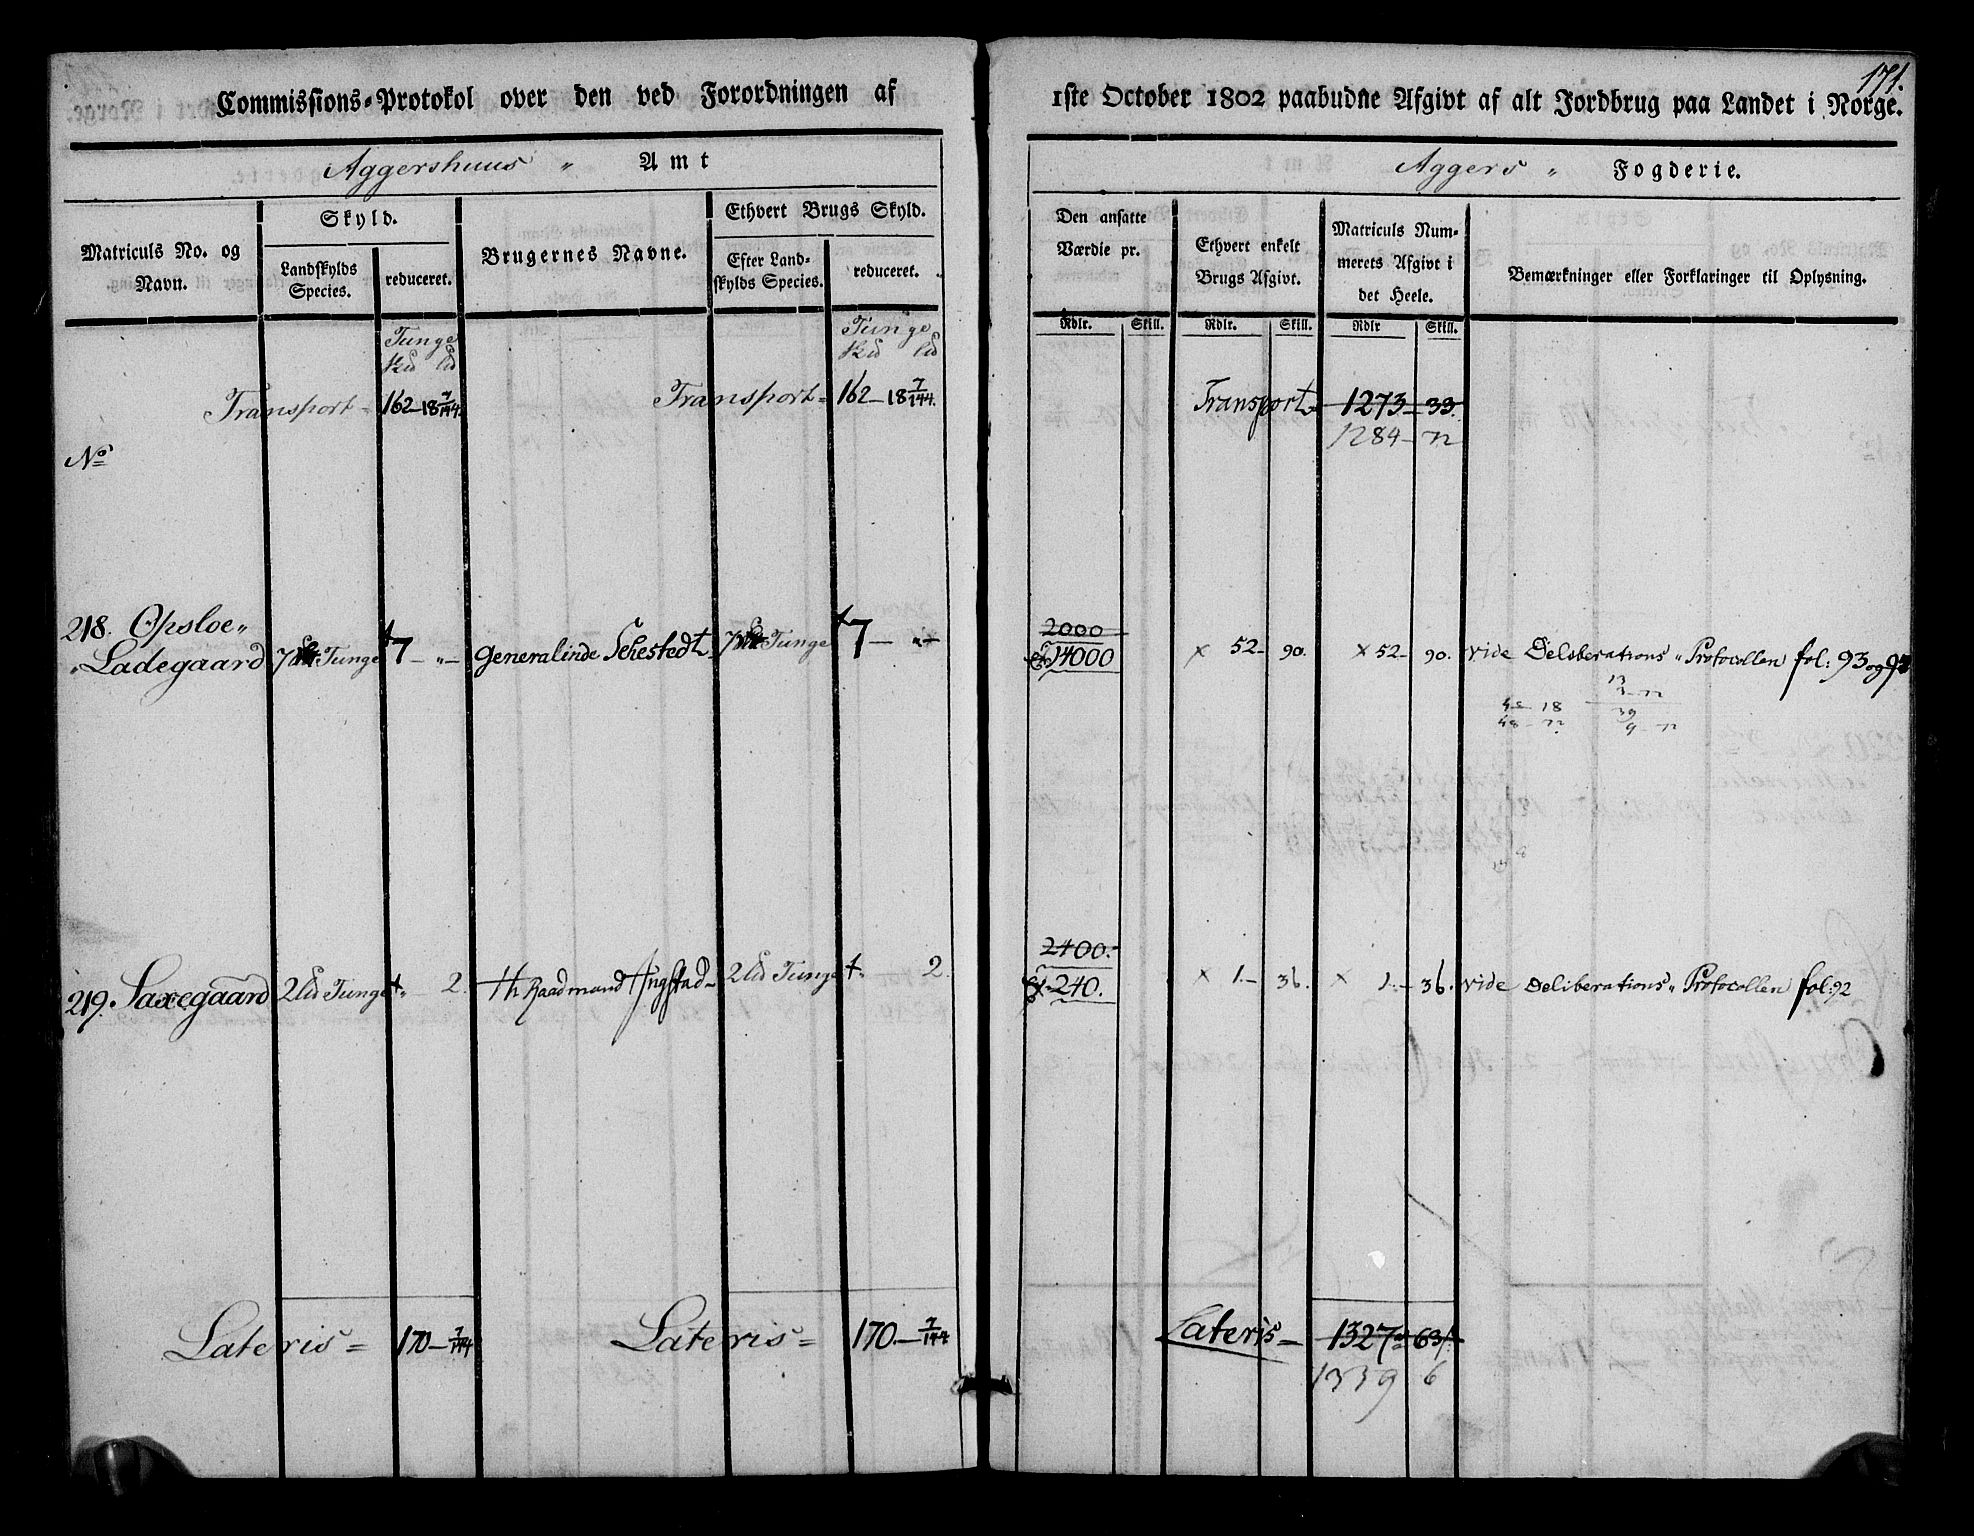 171.
Commissions-Protokol over den ved Forordningen af 1ste October 1802 paabudne Afgivt af alt Jordbrug paa Landet i Norge.
Aggershuus „ Amt
Aggers „ Fogderie.
Matriculs No. og Navn.
Skyld.
Landskylds Species.
reduceret.
Brugernes Navne.
Ethvert Brugs Skyld.
Efter Landskylds Species.
reduceret.
Den ansatte Værdie pr.
Ethvert enkelt Brugs Afgivt.
Matriculs Nummerets Afgivt i det Heele.
Bemærkninger eller Forklaringer til Oplysning.
Rdlr. Skill. Rdlr. Skill. Rdlr Skill.
Tunge Tunge
Transport- 162-18 7/144. Transport- 162-18 7/144. Transport- 1273-33.
1284-72
No
218. Opsloe„ 2000
„Ladegaard 7 Tunge +7 - „ - Generalinde Sehestedt- 7 Tunge +7 - „ - 14000 x 52- 90. x 52- 90. vide Deliberations„ Protocollen fol: 93 og
13
3-72
18 39
48-72 9-72
2400.-
219. Saxegaard 2 Tunge + „ 2. Hr Raadmand Ingstad- 2 Tunge + „ 2. x 240. x 1.- 36. x 1.- 36. vide Deliberations„ Protocollen fol: 92
Lateris = 170- 7/144 Lateris = 170.- 7/144 Lateris- 1327-63
1339 6